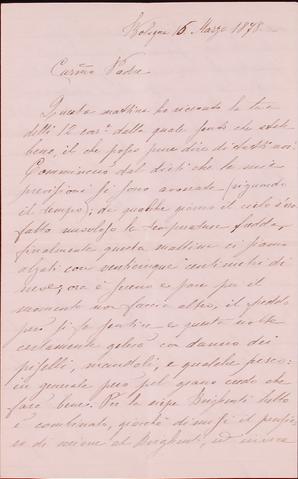 Bologna 15 Marzo 1878.
Carmo Padre
Questa mattina ho ricevuto la tua
delli 12 corr. dalla quale sento che state
bene, il che posso pure dire di tutti noi.
Comincierò dal dirti che le mie
previsioni si sono avverate riguardo
il tempo; da qualche giorno il cielo s'era
fatto nuvoloso la temperatura fredda,
finalmente questa mattina ci siamo
alzati con venticinque centimetri di
neve; ora è sereno e pare per il
momento non faccia altro, il freddo
però si fa sentire e questa notte
certamente gelerà con danno dei
piselli, mandorli, e qualche pesco:
in generale però pel grano credo che
farà bene. Per la siepe Brighenti tutto
è combinato, giacchè di
al Brighenti, ed invece